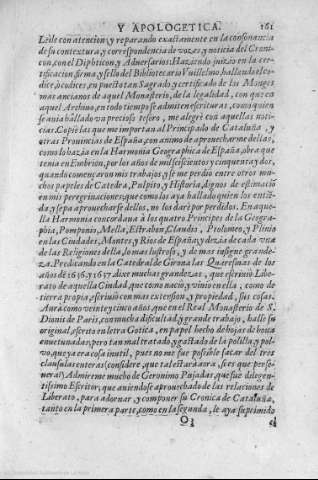 Y APOLOGETICA. 161
Leìle con atencion, y reparando exactamente en la consonancia
de su contextura, y correspondencia de vozes, y noticia del Croni-
con, con el Dipticon, y Adversarios: Haziendo juizio en la cer-
tificacion firma, y sello del Bibliotecario Vuillelmo, hallando el co-
dice, ò codices, en puesto tan Sagrado, y certificado de los Monges
mas ancianos de aquel Monasterio, de la legalidad, con que en
aquel Archivo, en todo tiempo se admiten escrituras, como quien
se avia hallado vn precioso tesoro, me alegrè con aquellas noti-
cias. Copiè las que me importan al Principado de Cataluña, y
otras Provincias de España, con animo de aprovecharme dellas,
como lo hazia en la Harmonia Geographica de España, obra que
tenia en Embrion, por los años de mil seiscientos y cinquenta y dos,
quando començaron mis trabajos, y se me perdio entre otros mu-
chos papeles de Catedra, Pulpito, y Historia, dignos de estimaciō
en mis peregrinaciones; que como los aya hallado quien los entiē-
da, y sepa aprovecharse dellos, no los darè por perdidos. En aque-
lla Harmonia concordava à los quatro Principes de la Geogra-
phia, Pomponio, Mella, Estrabon, Claudio, Ptolomeo, y Plinio
en las Ciudades, Montes, y Rios de España, y dezia de cada vna
de las Religiones della, lo mas lustroso, y de mas insigne grande-
za. Predicando en la Catedral de Girona las Quaresmas de los
años de 1656. y 1657 dixe muchas grandezas, que escriviò Libe-
rato de aquella Ciudad, que como naciò, y vivio en ella, como de
tierra propia, escriviò con mas extension, y propiedad, sus cosas.
Aurà como veinte y cinco años, que en el Real Monasterio de S.
Dionis de Paris, con mucha dificultad, y grande trabajo, hallè su
original, escrito en letra Gotica, en papel hecho de hojas de boxa
anuetunadas; pero tan maltratado, y gastado de la polilla, y pol-
vo, que ya era cosa inutil, pues no me fue posible sacar del tres
clausulas enteras (considere, que tal estarà aora, si es que perse-
vera!) Admireme mucho de Geronimo Pujadas, que fue diligen-
tissimo Escritor, que aviendose aprovechado de las relaciones de
Liberato, para adornar, y componer su Cronica de Cataluña,
tanto en la primera parte, como en la segunda, le aya suprimido
O 3 el